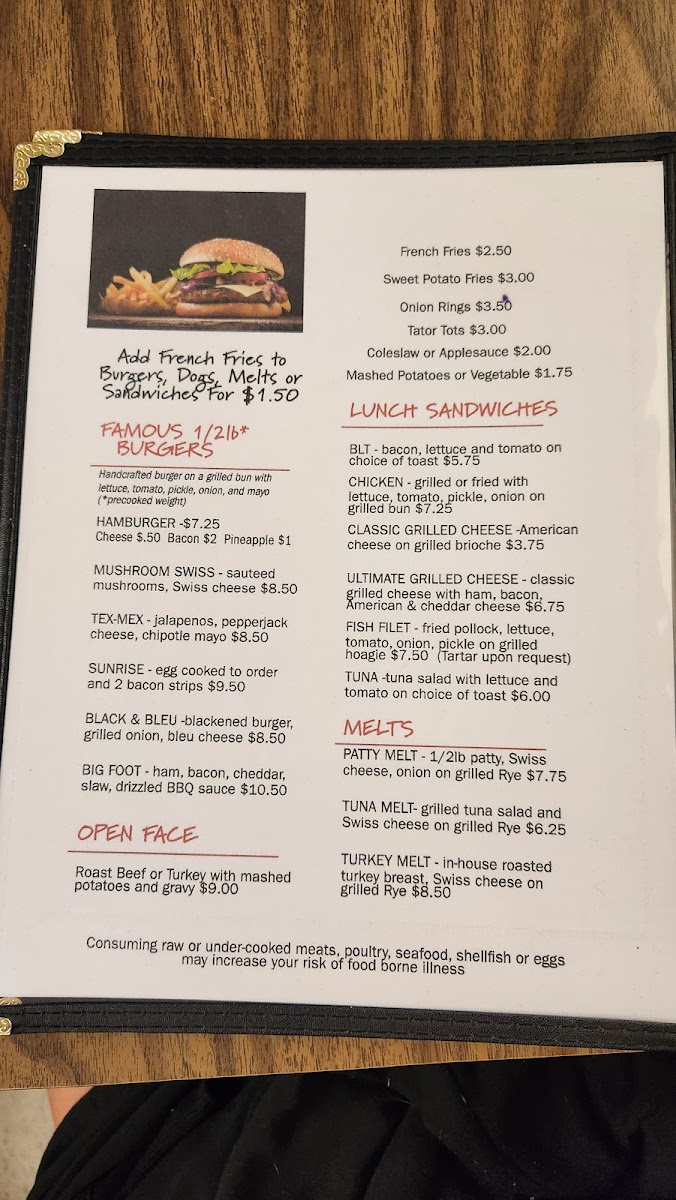 Add French Fries to
Burgers, Dogs, Melts or
Sandwiches For $1.50
FAMOUS 1/2lb*
BURGERS
Handcrafted burger on a grilled bun with
lettuce, tomato, pickle, onion, and mayo
(*precooked weight)
HAMBURGER -$7.25
Cheese $.50 Bacon $2 Pineapple $1
MUSHROOM SWISS - sauteed
mushrooms, Swiss cheese $8.50
TEX-MEX - jalapenos, pepperjack
cheese, chipotle mayo $8.50
SUNRISE - egg cooked to order
and 2 bacon strips $9.50
BLACK & BLEU -blackened burger,
grilled onion, bleu cheese $8.50
BIG FOOT - ham, bacon, cheddar,
slaw, drizzled BBQ sauce $10.50
OPEN FACE
Roast Beef or Turkey with mashed
potatoes and gravy $9.00
French Fries $2.50
Sweet Potato Fries $3.00
Onion Rings $3.50
Tator Tots $3.00
Coleslaw or Applesauce $2.00
Mashed Potatoes or Vegetable $1.75
LUNCH SANDWICHES
BLT - bacon, lettuce and tomato on
choice of toast $5.75
CHICKEN - grilled or fried with
lettuce, tomato, pickle, onion on
grilled bun $7.25
CLASSIC GRILLED CHEESE -American
cheese on grilled brioche $3.75
ULTIMATE GRILLED CHEESE - classic
grilled cheese with ham, bacon,
American & cheddar cheese $6.75
FISH FILET - fried pollock, lettuce,
tomato, onion, pickle on grilled
hoagie $7.50 (Tartar upon request)
TUNA -tuna salad with lettuce and
tomato on choice of toast $6.00
MELTS
PATTY MELT - 1/2lb patty, Swiss
cheese, onion on grilled Rye $7.75
TUNA MELT- grilled tuna salad and
Swiss cheese on grilled Rye $6.25
TURKEY MELT - in-house roasted
turkey breast, Swiss cheese on
grilled Rye $8.50
Consuming raw or under-cooked meats, poultry, seafood, shellfish or eggs
may increase your risk of food borne illness